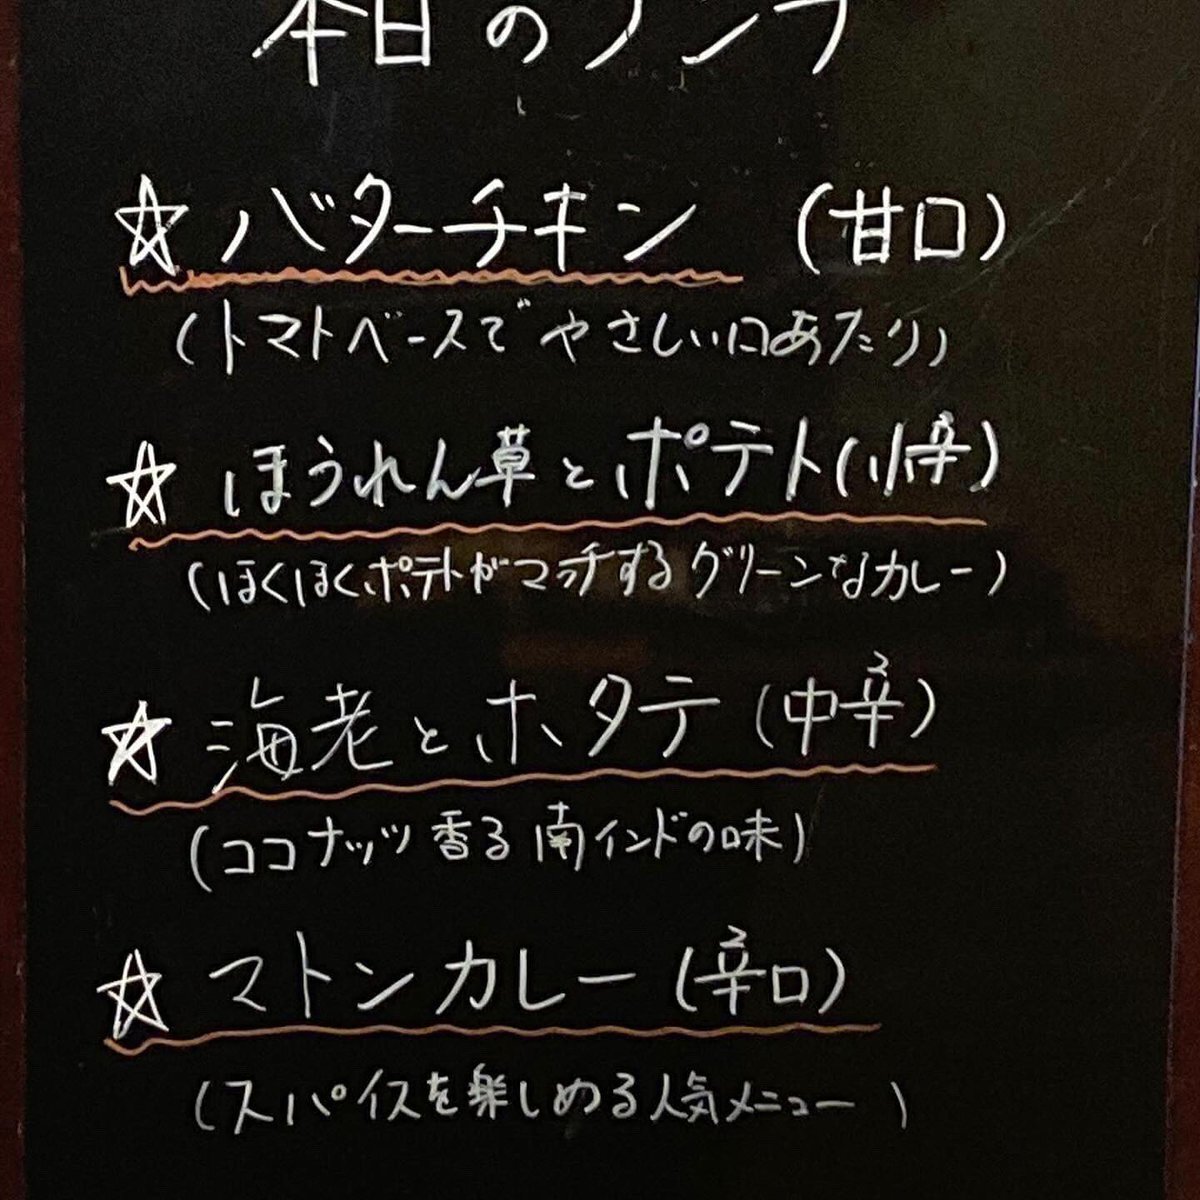 本日のランチ
☆バターチキン (甘口)
(トマトベースでやさしい口あたり)
☆ほうれん草とポテト(小辛)
(ほくほくポテトがマッチするグリーンなカレー)
☆海老とホタテ(中辛)
(ココナッツ香る南インドの味)
☆マトンカレー(辛口)
(スパイスを楽しめる人気メニュー)